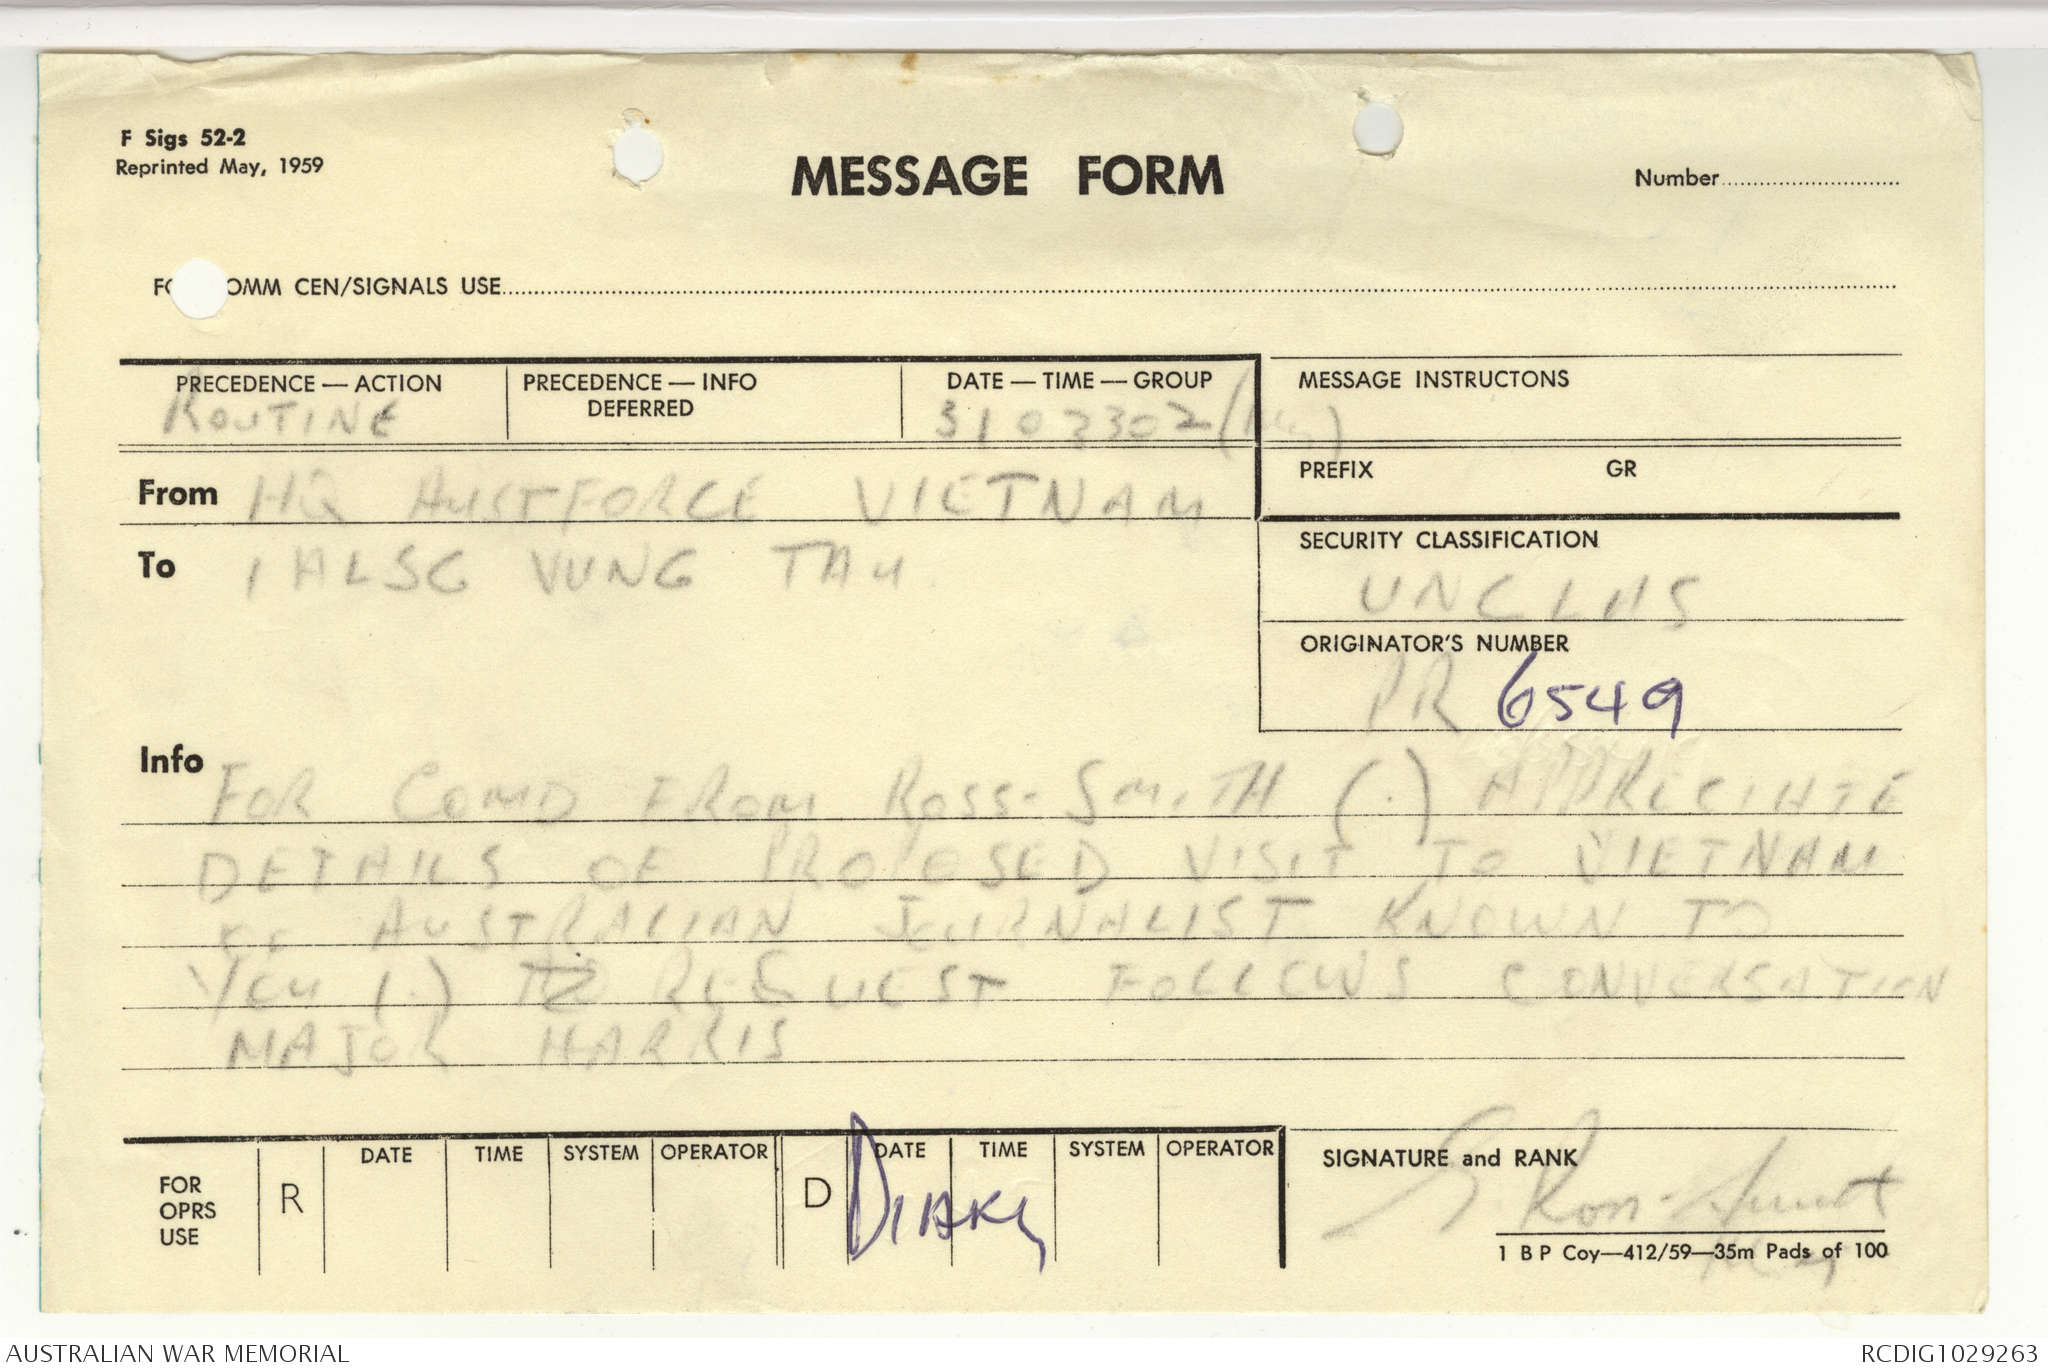 F Sigs 52-2
Reprinted May, 1959
MESSAGE FORM
Number
FO OMM CEN/SIGNALS USE
PRECEDENCE — ACTION
ROUTINE
PRECEDENCE — INFO
DEFERRED
DATE — TIME — GROUP
310330Z
MESSAGE INSTRUCTONS
PREFIX GR
From HQ AUSTFORCE VIETNAM
To 1 ALSG VUNG TAU
SECURITY CLASSIFICATION
UNCLAS
ORIGINATOR'S NUMBER
PR 6549
Info
FOR COMD FROM ROSS-SMITH (.) APPRECIATE
DETAILS OF PROPOSED VISIT TO VIETNAM
AUSTRALIAN JOURNALIST KNOWN TO
YOU (.) REQUEST FOLLOWS CONVERSATION
MAJOR HARRIS
FOR
OPRS
USE
R
DATE TIME SYSTEM OPERATOR
D
DATE TIME SYSTEM OPERATOR
DIARY
SIGNATURE and RANK
Ross-Smith
1 B P Coy—412/59—35m Pads of 100
AUSTRALIAN WAR MEMORIAL
RCDIG1029263